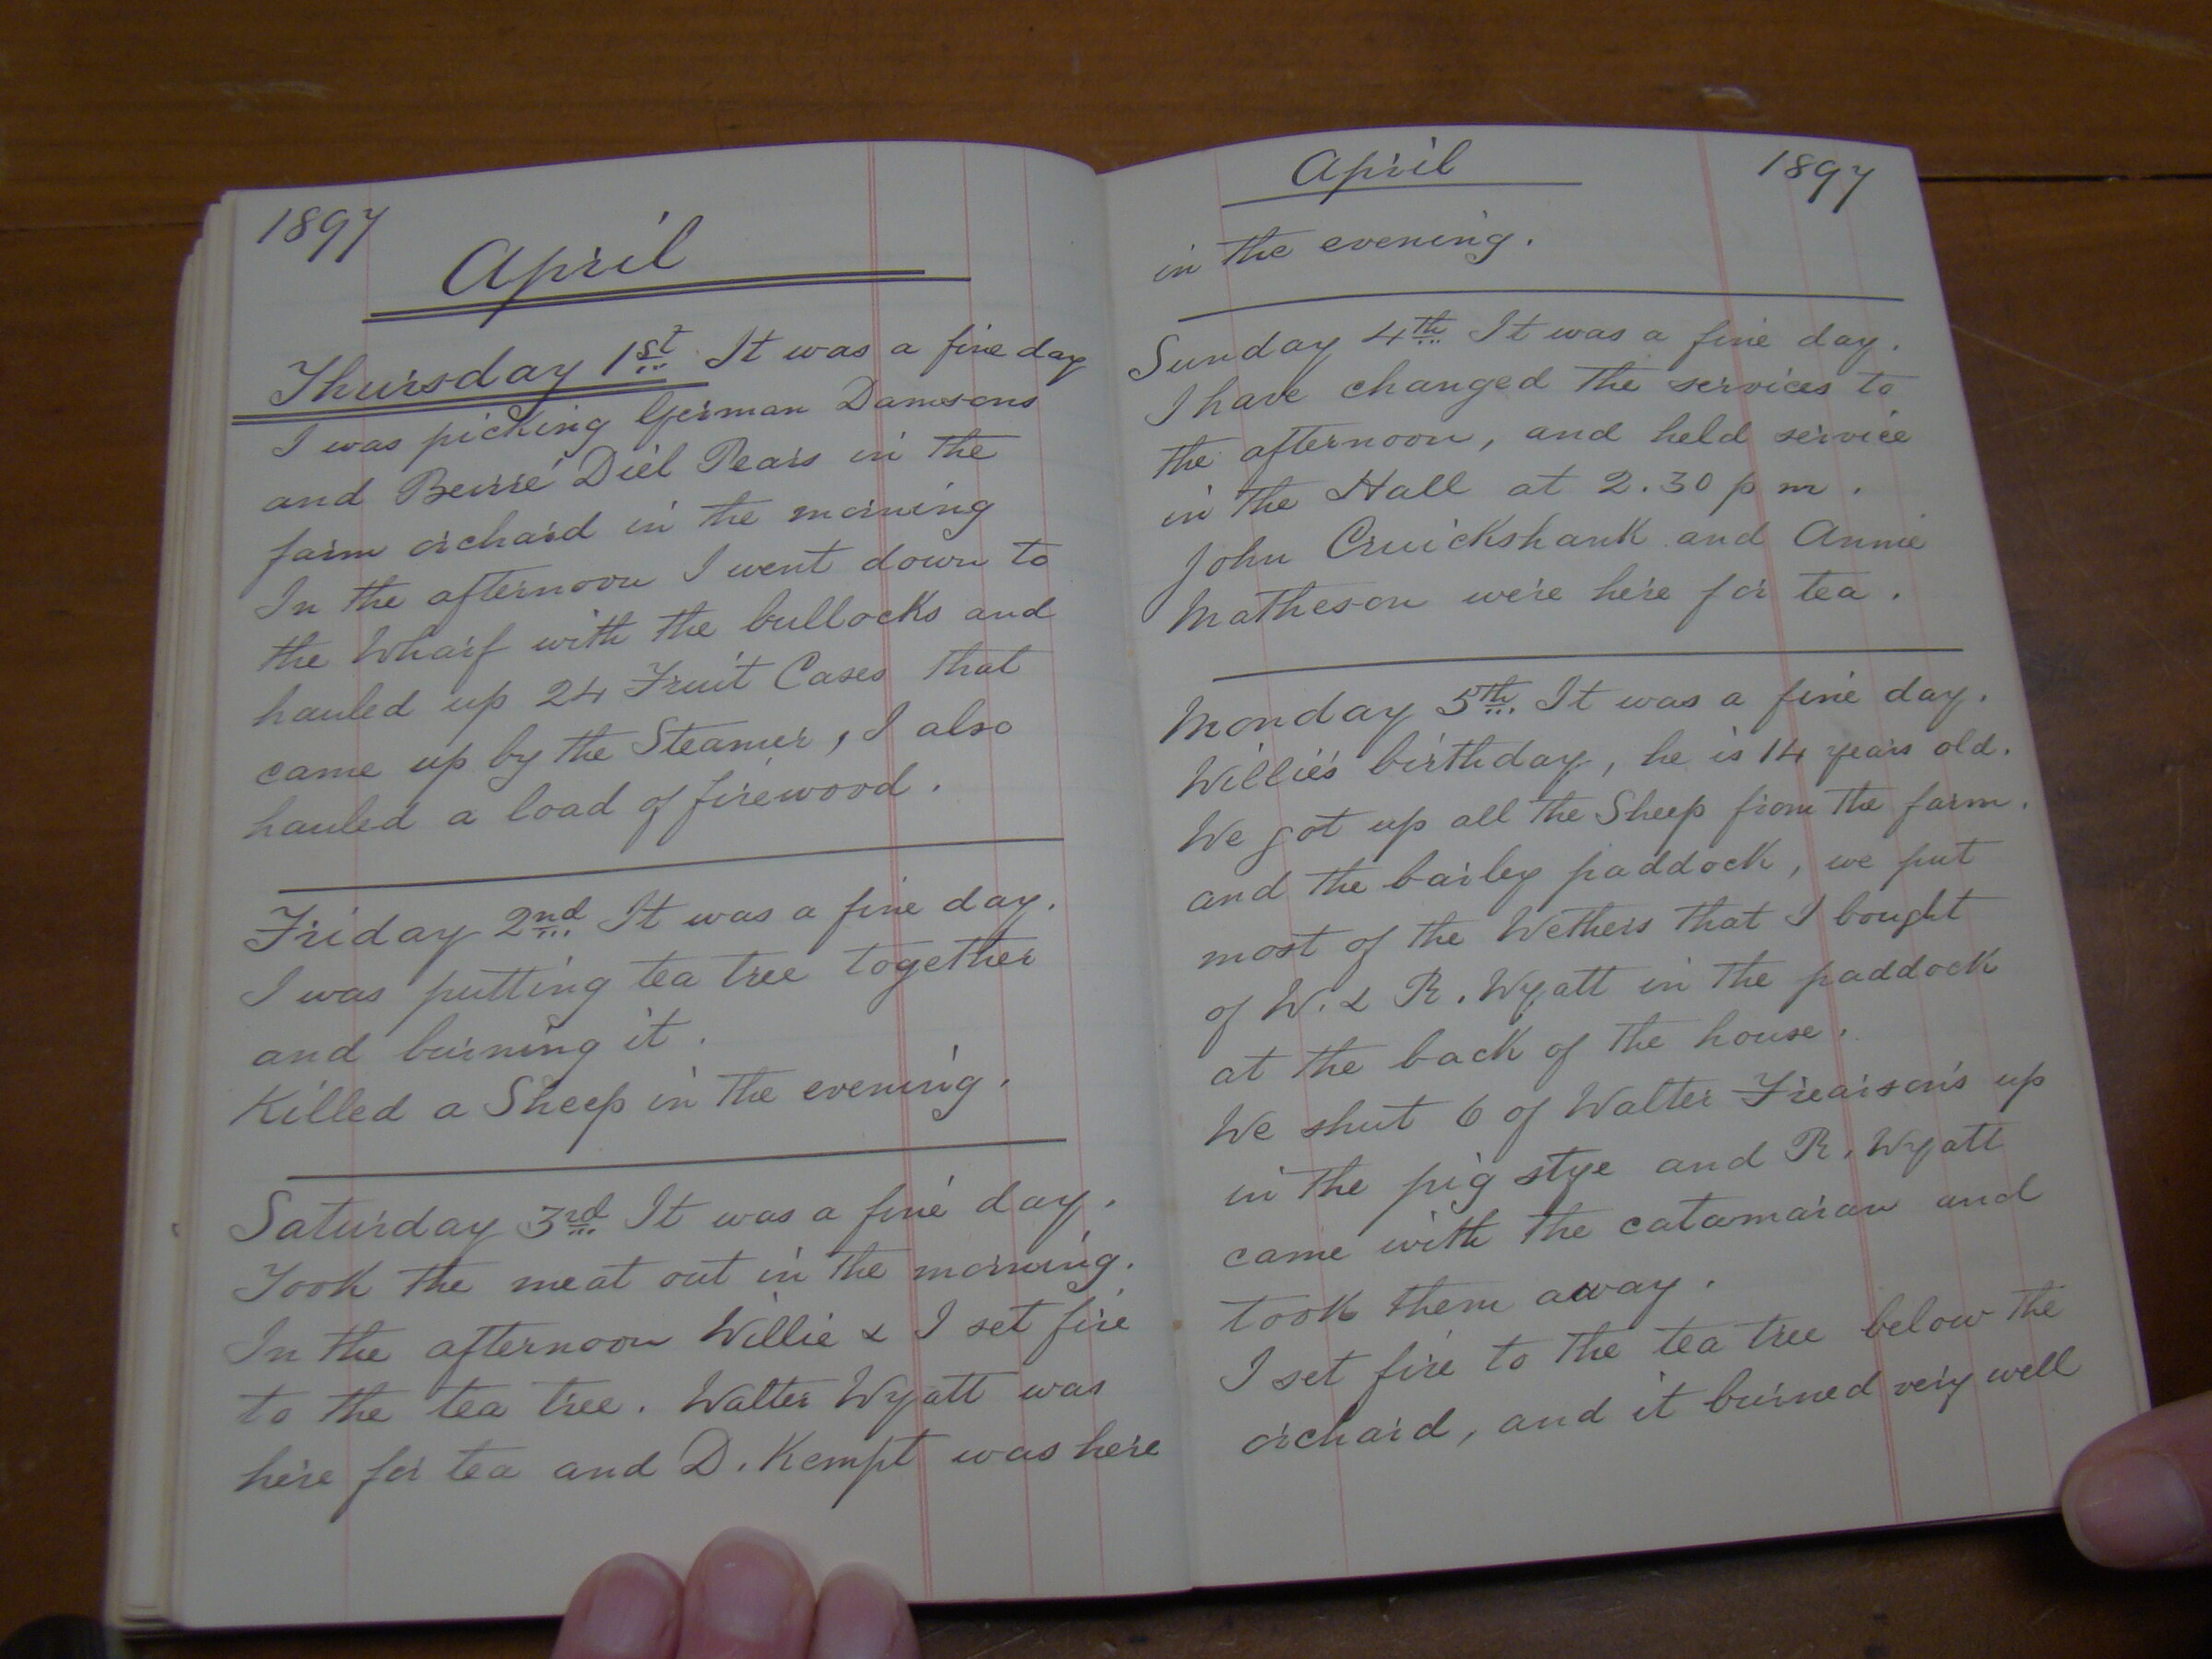 1897
April
Thursday 1st It was a fine day
I was picking German Damsons
and Beurré Diel Pears in the
farm orchard in the morning
In the afternoon I went down to
the Wharf with the bullocks and
hauled up 24 Fruit Cases that
came up by the Steamer, I also
hauled a load of firewood.
Friday 2nd It was a fine day.
I was putting tea tree together
and burning it.
Killed a Sheep in the evening.
Saturday 3rd It was a fine day.
Took the meat out in the morning.
In the afternoon Willie & I set fire
to the tea tree. Walter Wyatt was
here for tea and D. Kempt was here
April 1897
in the evening.
Sunday 4th It was a fine day.
I have changed the services to
the afternoon, and held service
in the Hall at 2.30 p m.
John Cruickshank and Annie
Matheson were here for tea.
Monday 5th. It was a fine day.
Willie's birthday, he is 14 years old.
We got up all the Sheep from the farm.
and the barley paddock, we put
most of the Wethers that I bought
of W. & R. Wyatt in the paddock
at the back of the house.
We shut 6 of Walter Frearson's up
in the pig stye and R. Wyatt
came with the catamaran and
took them away.
I set fire to the tea tree below the
orchard, and it burned very well